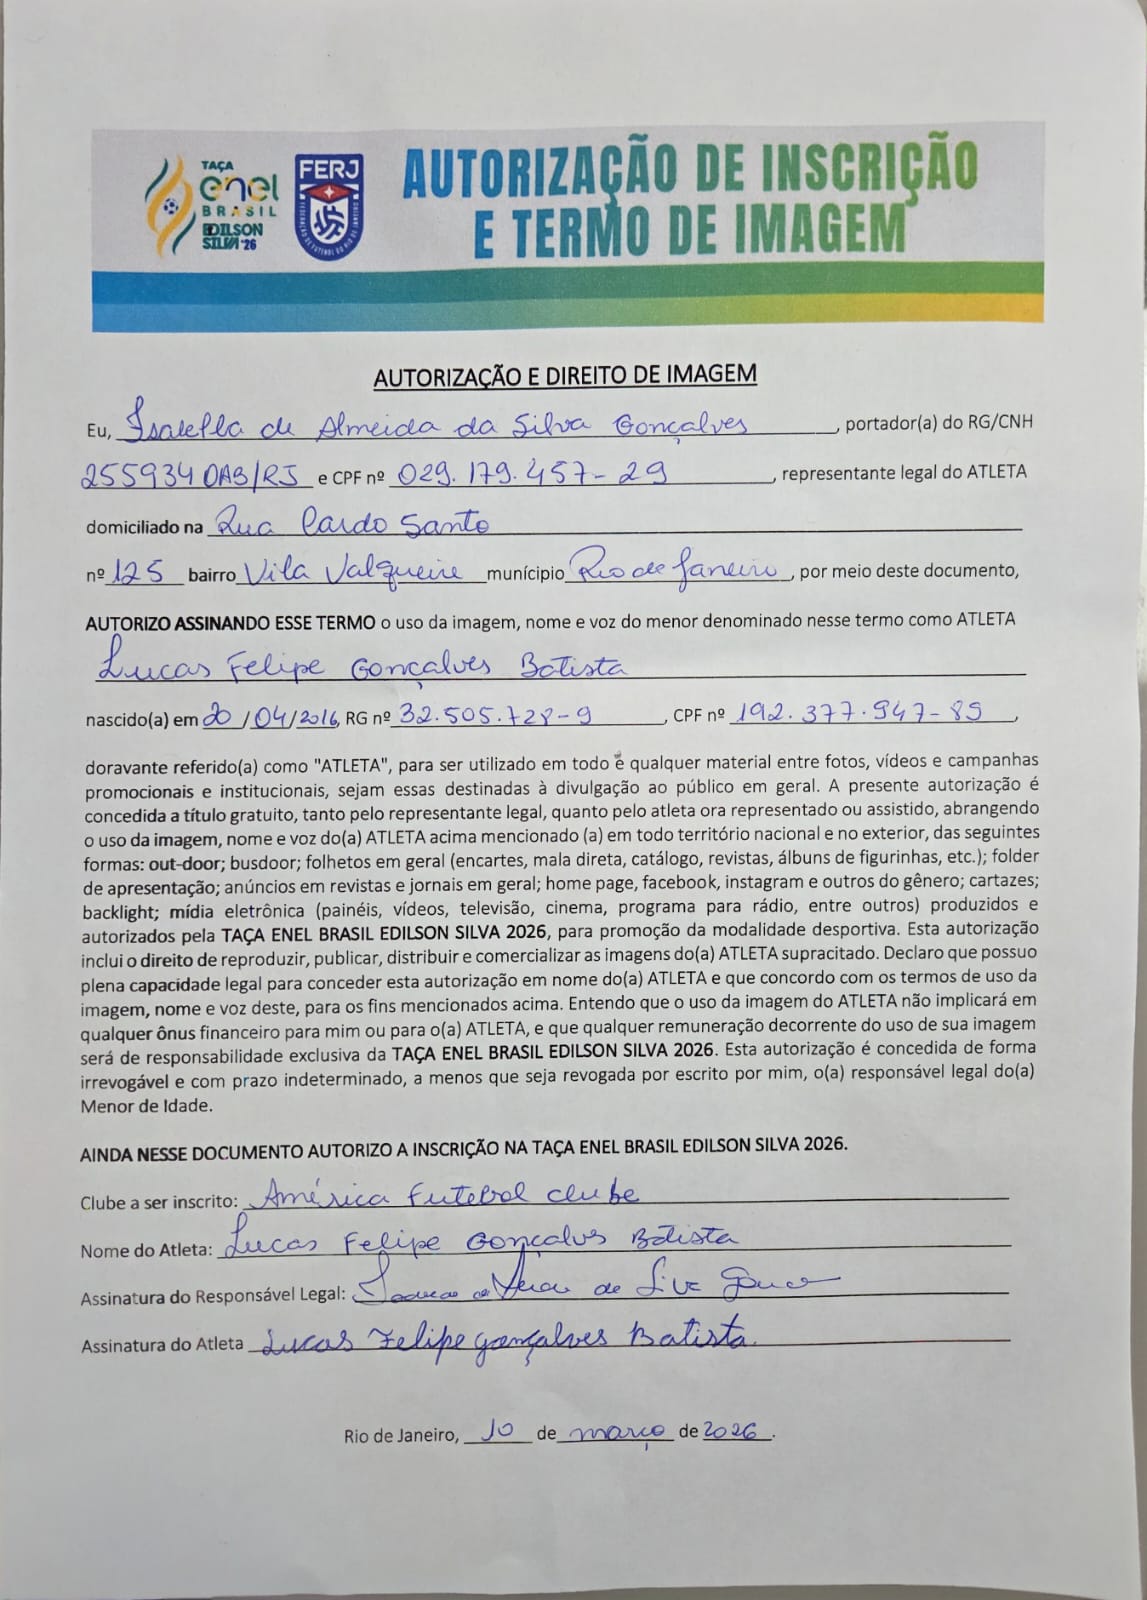 TAÇA
enel
BRASIL
EDILSON
SILVA '26
FERJ
FEDERAÇÃO DE FUTEBOL DO RIO DE JANEIRO
AUTORIZAÇÃO DE INSCRIÇÃO
E TERMO DE IMAGEM
AUTORIZAÇÃO E DIREITO DE IMAGEM
Eu, Isabella de Almeida da Silva Gonçalves, portador(a) do RG/CNH
255934 OAB/RJ e CPF nº 029.179.457-29, representante legal do ATLETA
domiciliado na Rua Cardo Santo
nº 125 bairro Vila Valqueire munícipio Rio de Janeiro, por meio deste documento,
AUTORIZO ASSINANDO ESSE TERMO o uso da imagem, nome e voz do menor denominado nesse termo como ATLETA
Lucas Felipe Gonçalves Batista
nascido(a) em 20/04/2016, RG nº 32.505.728-9, CPF nº 192.377.947-89,
doravante referido(a) como "ATLETA", para ser utilizado em todo e qualquer material entre fotos, vídeos e campanhas
promocionais e institucionais, sejam essas destinadas à divulgação ao público em geral. A presente autorização é
concedida a título gratuito, tanto pelo representante legal, quanto pelo atleta ora representado ou assistido, abrangendo
o uso da imagem, nome e voz do(a) ATLETA acima mencionado (a) em todo território nacional e no exterior, das seguintes
formas: out-door; busdoor; folhetos em geral (encartes, mala direta, catálogo, revistas, álbuns de figurinhas, etc.); folder
de apresentação; anúncios em revistas e jornais em geral; home page, facebook, instagram e outros do gênero; cartazes;
backlight; mídia eletrônica (painéis, vídeos, televisão, cinema, programa para rádio, entre outros) produzidos e
autorizados pela TAÇA ENEL BRASIL EDILSON SILVA 2026, para promoção da modalidade desportiva. Esta autorização
inclui o direito de reproduzir, publicar, distribuir e comercializar as imagens do(a) ATLETA supracitado. Declaro que possuo
plena capacidade legal para conceder esta autorização em nome do(a) ATLETA e que concordo com os termos de uso da
imagem, nome e voz deste, para os fins mencionados acima. Entendo que o uso da imagem do ATLETA não implicará em
qualquer ônus financeiro para mim ou para o(a) ATLETA, e que qualquer remuneração decorrente do uso de sua imagem
será de responsabilidade exclusiva da TAÇA ENEL BRASIL EDILSON SILVA 2026. Esta autorização é concedida de forma
irrevogável e com prazo indeterminado, a menos que seja revogada por escrito por mim, o(a) responsável legal do(a)
Menor de Idade.
AINDA NESSE DOCUMENTO AUTORIZO A INSCRIÇÃO NA TAÇA ENEL BRASIL EDILSON SILVA 2026.
Clube a ser inscrito: América Futebol clube
Nome do Atleta: Lucas Felipe Gonçalves Batista
Assinatura do Responsável Legal:
Assinatura do Atleta Lucas Felipe gonçalves Batista
Rio de Janeiro, 10 de março de 2026.